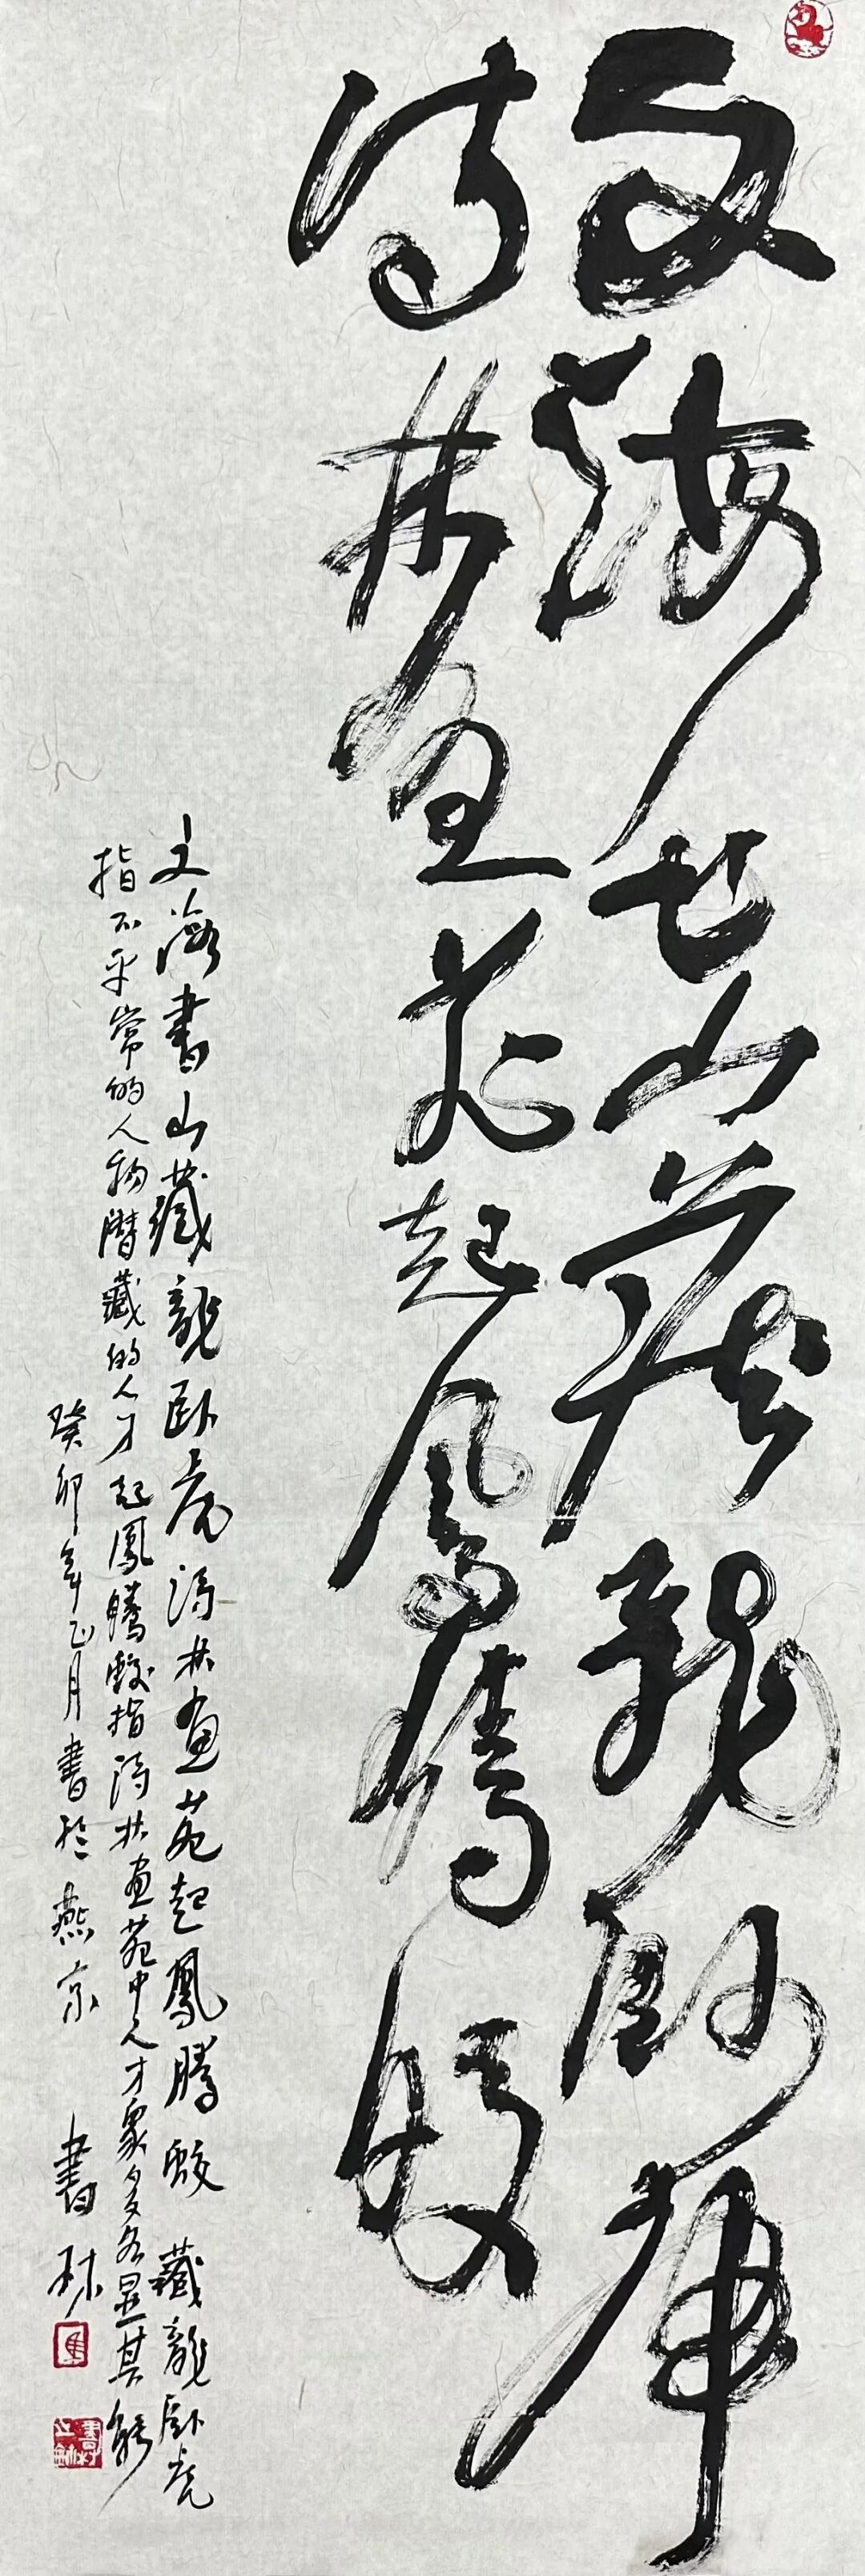 文海书山藏龙卧虎
诗林画苑起凤腾蛟
文海書山藏龍卧虎诗林画苑起鳳騰蛟 藏龍卧虎
指不平常的人物潜藏的人才起鳳騰蛟指诗林画苑中人才众多各显其能
癸卯年正月書於燕京 書林